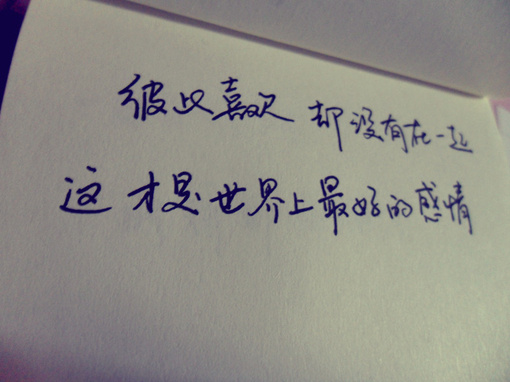 彼此喜欢 却没有在一起
这 才是世界上最好的感情